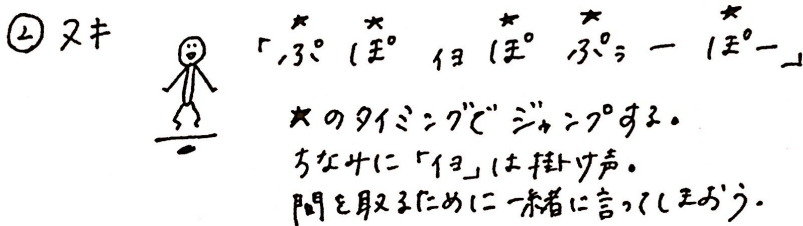 ★ ★ ★ ★ ★
② ヌキ 「ぷ ぽ イヨ ぽ ぷぅー ぽー」
★のタイミングでジャンプする。
ちなみに「イヨ」は掛け声。
間を取るために一緒に言ってしまおう。